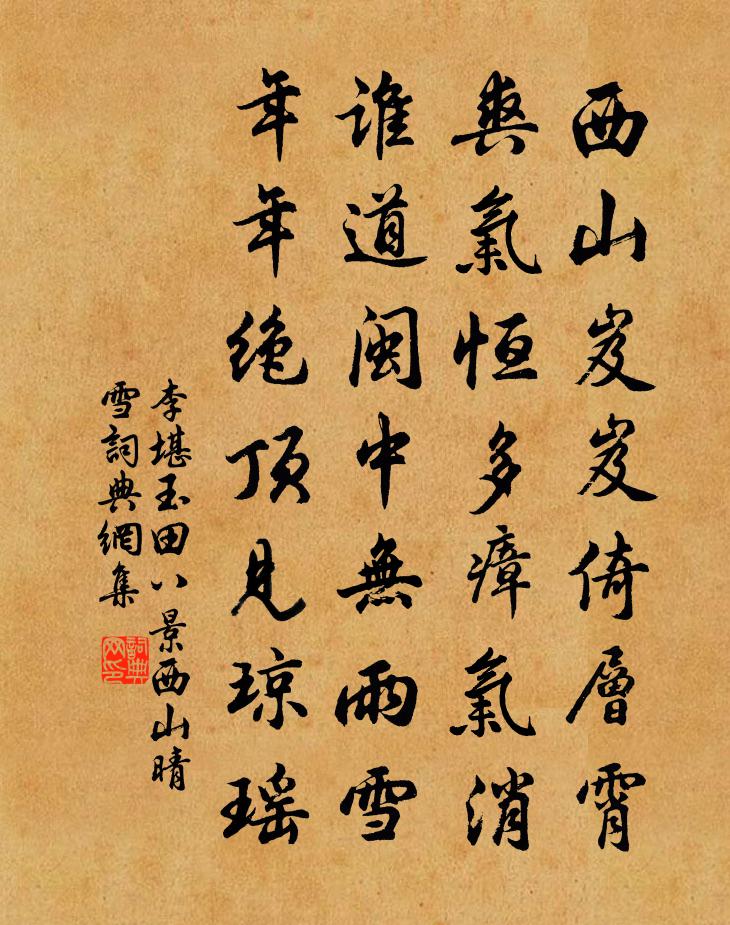 西山岌岌倚層霄
爽氣恒多瘴氣消
誰道閩中無雨雪
年年絶頂見琼瑤
李堪玉田八景西山晴
雪詞典網集
詞典网印